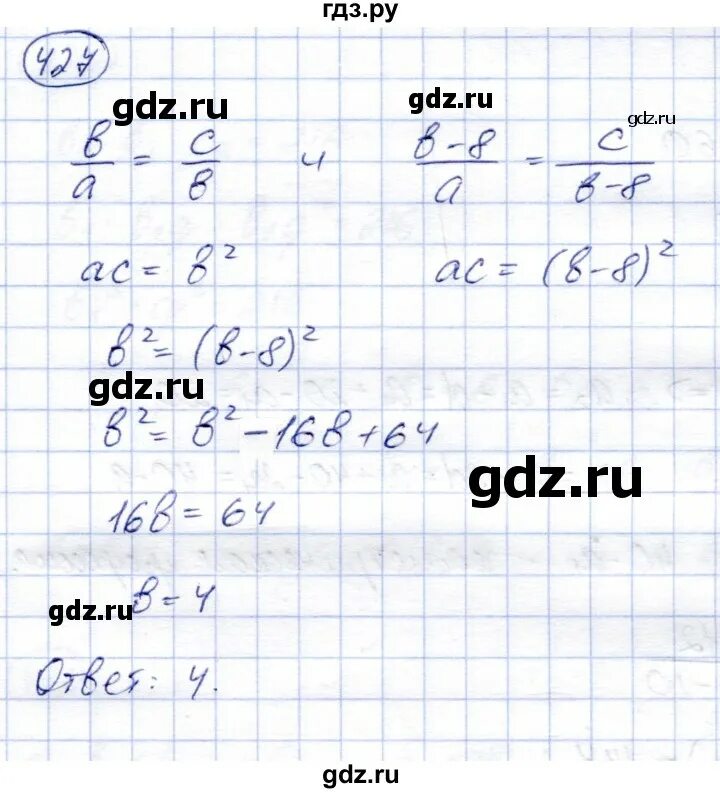 гдз.ру
427
gdz.ru gdz.ru gdz.ru
в/а = с/в и (в-8)/а = с/(в-8)
ас = в² ас = (в-8)²
в² = (в-8)²
gdz.ru
в² = в² - 16в + 64
gdz.ru
16в = 64
gdz.ru
в = 4
Ответ: 4.
gdz.ru